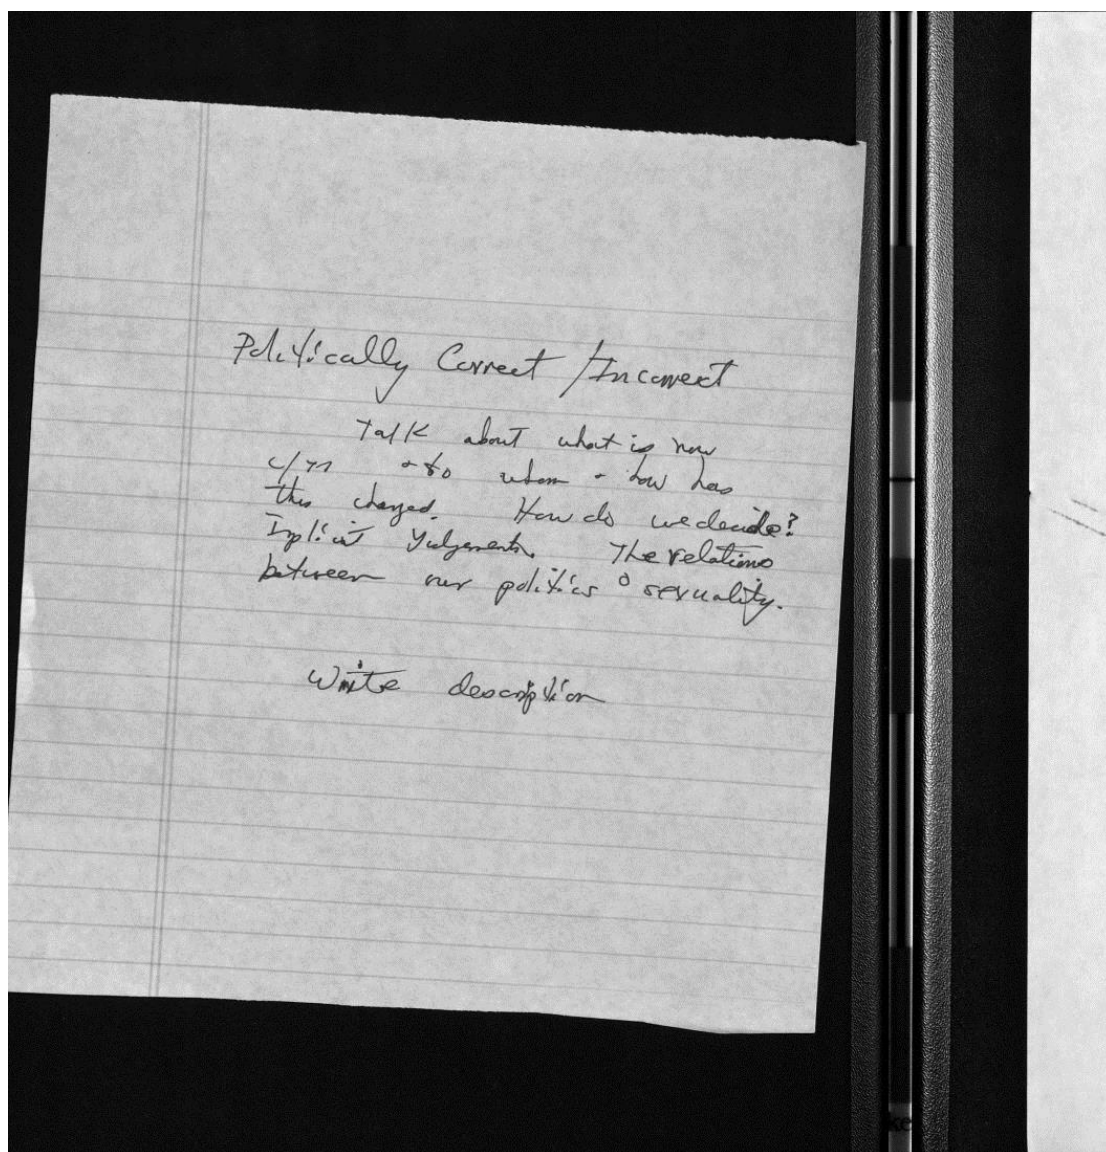 Politically Correct / Incorrect
Talk about what is now
+ to whom + how has
this changed. How do we decide?
Implicit Judgements. The relations
between our politics & sexuality.
Write description